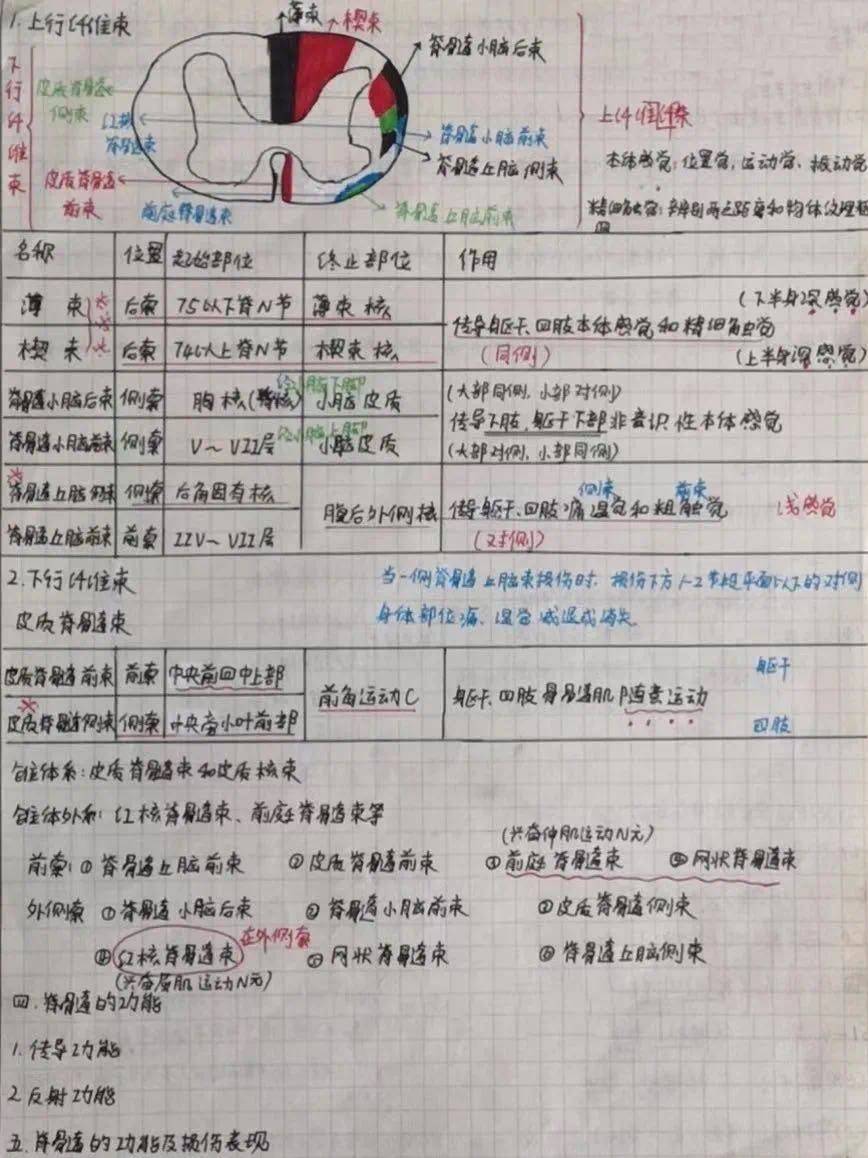 1.上行纤维束
薄束 楔束
脊髓小脑后束
下行纤维束
皮质脊髓侧束
红核脊髓束
脊髓小脑前束
脊髓丘脑侧束
上纤维束
本体感觉：位置觉，运动觉、振动觉
皮质脊髓前束
前庭脊髓束
脊髓丘脑前束
精细触觉：辨别两点距离和物体纹理
名称 位置 起始部位 终止部位 作用
薄束 后索 T5以下脊N节 薄束核 (下半身深感觉)
传导躯干、四肢本体感觉和精细触觉
楔束 后索 T4以上脊N节 楔束核 (同侧) (上半身深感觉)
脊髓小脑后束 侧索 胸核(背核) 经小脑下脚 小脑皮质 (大部同侧，小部对侧)
传导下肢，躯干下部非意识性本体感觉
脊髓小脑前束 侧索 V～VII层 经小脑上脚 小脑皮质 (大部对侧，小部同侧)
脊髓丘脑侧束 侧索 后角固有核
腹后外侧核 传导躯干、四肢痛温觉和粗触觉 侧束 前束 浅感觉
脊髓丘脑前束 前索 IIV～VII层 (对侧)
2.下行纤维束 当一侧脊髓丘脑束损伤时，损伤下方1-2节段平面以下的对侧
皮质脊髓束 身体部位痛、温觉减退或消失
皮质脊髓前束 前索 中央前回中上部 躯干
前角运动C 躯干、四肢骨骼肌随意运动
皮质脊髓侧束 侧索 中央旁小叶前部 四肢
锥体系：皮质脊髓束和皮质核束
锥体外系：红核脊髓束、前庭脊髓束等
(兴奋伸肌运动N元)
前索：① 脊髓丘脑前束 ② 皮质脊髓前束 ③ 前庭脊髓束 ④ 网状脊髓束
外侧索 ① 脊髓小脑后束 ② 脊髓小脑前束 ③ 皮质脊髓侧束
④ 红核脊髓束 在外侧索 ⑤ 网状脊髓束 ⑥ 脊髓丘脑侧束
(兴奋屈肌运动N元)
四.脊髓的功能
1.传导功能
2.反射功能
五.脊髓的功能及损伤表现